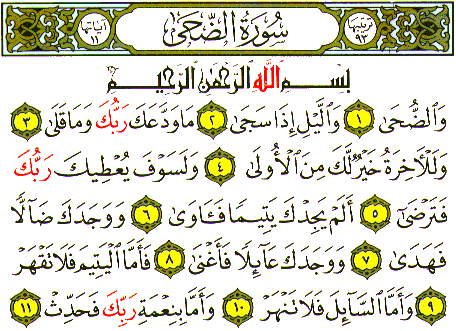 ترتيبها ٩٣ سُورَةُ الضُّحَى آياتها ١١
بِسْمِ اللَّهِ الرَّحْمَنِ الرَّحِيمِ
وَالضُّحَى ١ وَالَّيْلِ إِذَا سَجَى ٢ مَا وَدَّعَكَ رَبُّكَ وَمَا قَلَى ٣
وَلَلْأَخِرَةُ خَيْرٌ لَّكَ مِنَ الْأُولَى ٤ وَلَسَوْفَ يُعْطِيكَ رَبُّكَ
فَتَرْضَى ٥ أَلَمْ يَجِدْكَ يَتِيمًا فَـَٔاوَى ٦ وَوَجَدَكَ ضَآلًّا
فَهَدَى ٧ وَوَجَدَكَ عَآئِلًا فَأَغْنَى ٨ فَأَمَّا الْيَتِيمَ فَلَا تَقْهَرْ
٩ وَأَمَّا السَّآئِلَ فَلَا تَنْهَرْ ١٠ وَأَمَّا بِنِعْمَةِ رَبِّكَ فَحَدِّثْ ١١